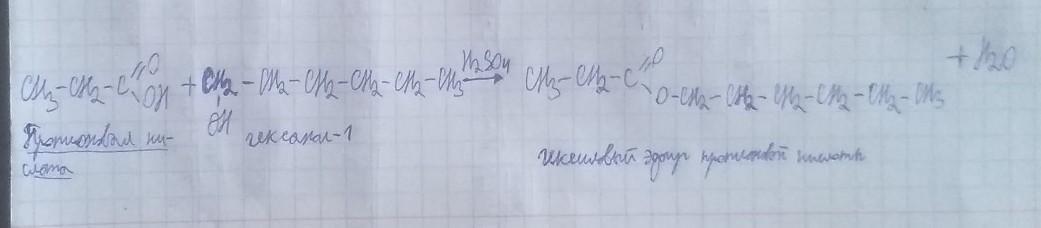 CH3-CH2-C=O OH + CH2-CH2-CH2-CH2-CH2-CH3 OH H2SO4 → CH3-CH2-C=O O-CH2-CH2-CH2-CH2-CH2-CH3 + H2O
Пропионовая ки-
слота
гексанол-1
гексиловый эфир пропионовой кислоты